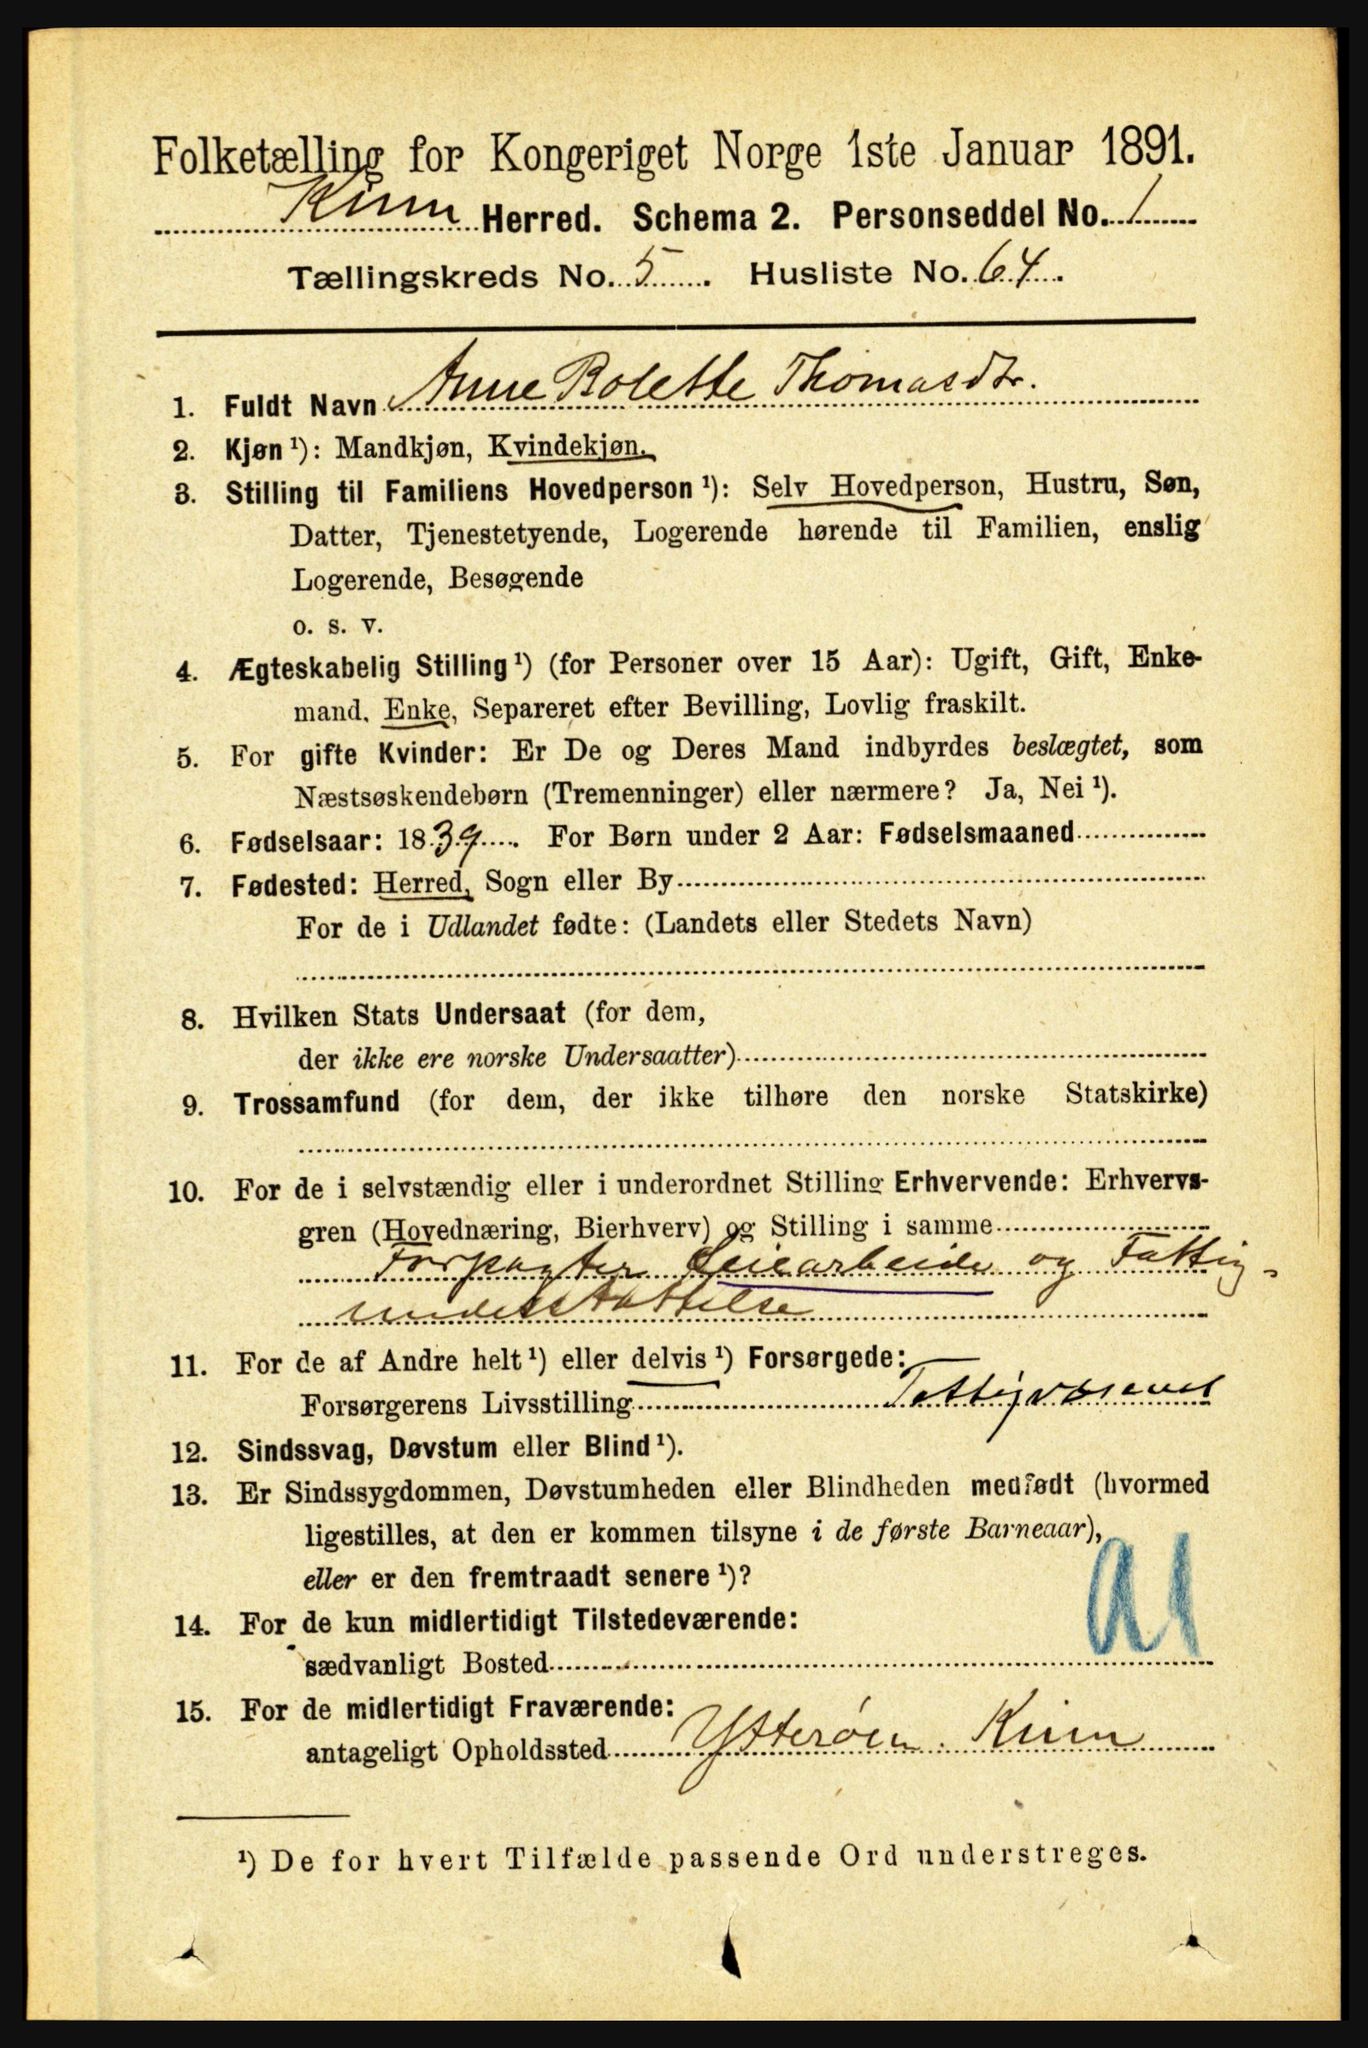 Folketælling for Kongeriget Norge 1ste Januar 1891.
Kinn Herred. Schema 2. Personseddel No. 1
Tællingskreds No. 5. Husliste No. 64.
1. Fuldt Navn Anne Bolette Thomasdtr.
2. Kjøn ¹): Mandkjøn, Kvindekjøn.
3. Stilling til Familiens Hovedperson ¹): Selv Hovedperson, Hustru, Søn,
Datter, Tjenestetyende, Logerende hørende til Familien, enslig
Logerende, Besøgende
o. s. v.
4. Ægteskabelig Stilling ¹) (for Personer over 15 Aar): Ugift, Gift, Enke-
mand, Enke, Separeret efter Bevilling, Lovlig fraskilt.
5. For gifte Kvinder: Er De og Deres Mand indbyrdes beslægtet, som
Næstsøskendebørn (Tremenninger) eller nærmere? Ja, Nei ¹).
6. Fødselsaar: 1839. For Børn under 2 Aar: Fødselsmaaned
7. Fødested: Herred, Sogn eller By
For de i Udlandet fødte: (Landets eller Stedets Navn)
8. Hvilken Stats Undersaat (for dem,
der ikke ere norske Undersaatter)
9. Trossamfund (for dem, der ikke tilhøre den norske Statskirke)
10. For de i selvstændig eller i underordnet Stilling Erhvervende: Erhvervs-
gren (Hovednæring, Bierhverv) og Stilling i samme
Forpagter Leiearbeide og Fattig-
understøttelse
11. For de af Andre helt ¹) eller delvis ¹) Forsørgede:
Forsørgerens Livsstilling Fattigvæsenet
12. Sindssvag, Døvstum eller Blind ¹).
13. Er Sindssygdommen, Døvstumheden eller Blindheden medfødt (hvormed
ligestilles, at den er kommen tilsyne i de første Barneaar),
eller er den fremtraadt senere ¹)?
a1
14. For de kun midlertidigt Tilstedeværende:
sædvanligt Bosted
15. For de midlertidigt Fraværende:
antageligt Opholdssted Ytterøen. Kinn
¹) De for hvert Tilfælde passende Ord understreges.